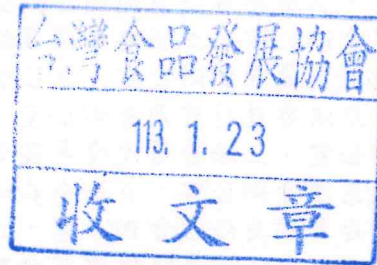 台灣食品發展協會
113. 1. 23
收文章